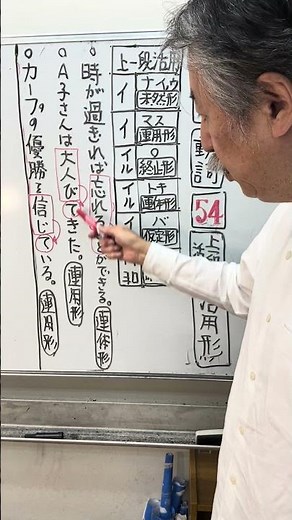 動詞
54
活用形
上一段活用
イ ナイ、ウ 未然形
イ マス 連用形
イル 。 終止形
イル トキ 連体形
バ 仮定形
。時が過ぎれば忘れる ができる。 連体形
。A子さんは大人びてきた。 連用形
。カープの優勝を信じている。 連用形